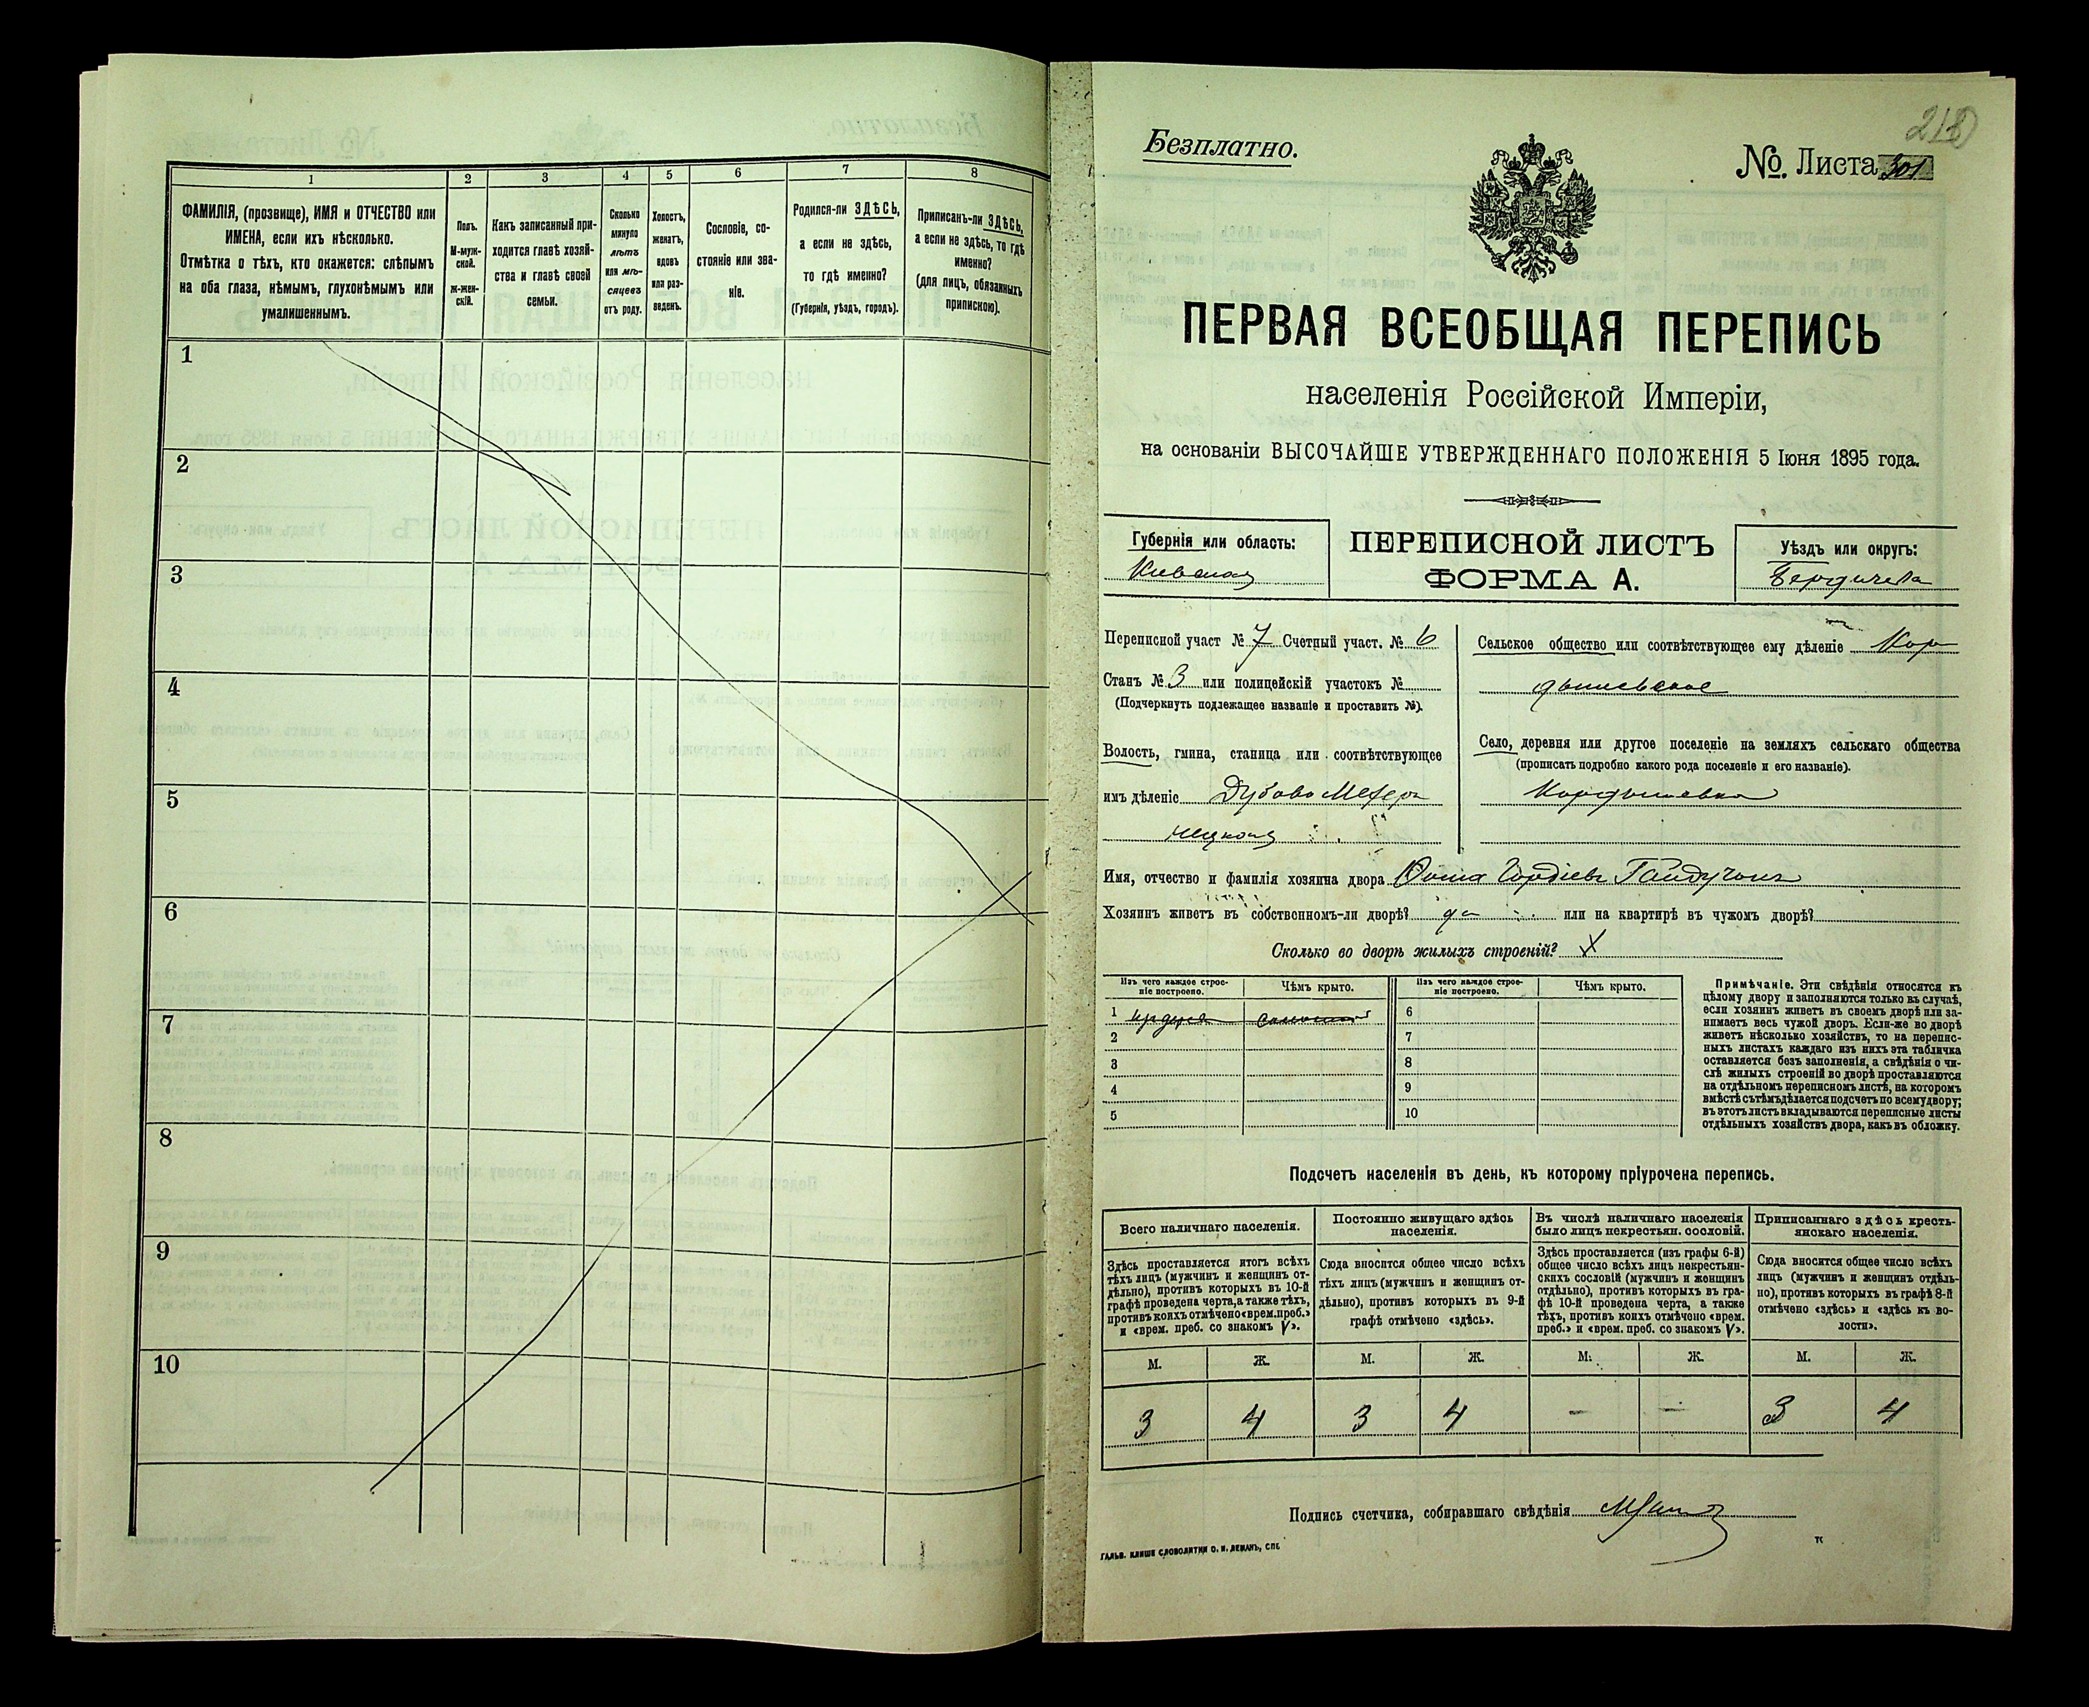 1
2
3
4
5
6
7
8
ФАМИЛІЯ, (прозвище), ИМЯ и ОТЧЕСТВО или
ИМЕНА, если ихъ нѣсколько.
Отмѣтка о тѣхъ, кто окажется: слѣпымъ
на оба глаза, нѣмымъ, глухонѣмымъ или
умалишеннымъ.
Полъ.
М-муж-
ской.
Ж-жен-
скій.
Какъ записанный при-
ходится главѣ хозяй-
ства и главѣ своей
семьи.
Сколько
минуло
лѣтъ
или мѣ-
сяцевъ
отъ роду.
Холостъ,
женатъ,
вдовъ
или раз-
веденъ.
Сословіе, со-
стояніе или зва-
ніе.
Родился-ли ЗДѢСЬ,
а если не здѣсь,
то гдѣ именно?
(Губернія, уѣздъ, городъ).
Приписанъ-ли ЗДѢСЬ,
а если не здѣсь, то гдѣ
именно?
(для лицъ, обязанныхъ
припискою).
1
2
3
4
5
6
7
8
9
10
218
Безплатно.
№. Листа 301
ПЕРВАЯ ВСЕОБЩАЯ ПЕРЕПИСЬ
населенія Россійской Имперіи,
на основаніи ВЫСОЧАЙШЕ УТВЕРЖДЕННАГО ПОЛОЖЕНІЯ 5 Іюня 1895 года.
Губернія или область:
Кіевская
ПЕРЕПИСНОЙ ЛИСТЪ
ФОРМА А.
Уѣздъ или округъ:
Бердичев
Переписной участ № 7 Счетный участ. № 6
Станъ № 3 или полицейскій участокъ №
(Подчеркнуть подлежащее названіе и проставить №).
Волость, гмина, станица или соотвѣтствующее
имъ дѣленіе Дубово Махари
нецкая
Сельское общество или соотвѣтствующее ему дѣленіе Кор
дышевское
Село, деревня или другое поселеніе на земляхъ сельскаго общества
(прописать подробно какого рода поселеніе и его названіе).
Кордышевка
Имя, отчество и фамилія хозяина двора Ѳома Гордіевъ Гайдучокъ
Хозяинъ живетъ въ собственномъ-ли дворѣ? да или на квартирѣ въ чужомъ дворѣ?
Сколько во дворѣ жилыхъ строеній? X
Изъ чего каждое строе-
ніе построено.
Чѣмъ крыто.
Изъ чего каждое строе-
ніе построено.
Чѣмъ крыто.
1 соломой
2
3
4
5
6
7
8
9
10
Примѣчаніе. Эти свѣдѣнія относятся къ
цѣлому двору и заполняются только въ случаѣ,
если хозяинъ живетъ въ своемъ дворѣ или за-
нимаетъ весь чужой дворъ. Если-же во дворѣ
живетъ нѣсколько хозяйствъ, то на перепис-
ныхъ листахъ каждаго изъ нихъ эта табличка
оставляется безъ заполненія, а свѣдѣнія о чи-
слѣ жилыхъ строеній во дворѣ проставляются
на отдѣльномъ переписномъ листѣ, на которомъ
вмѣстѣ съ тѣмъ дѣлается подсчетъ по всему двору;
въ этотъ листъ вкладываются переписные листы
отдѣльныхъ хозяйствъ двора, какъ въ обложку.
Подсчетъ населенія въ день, къ которому пріурочена перепись.
Всего наличнаго населенія.
Постоянно живущаго здѣсь
населенія.
Въ числѣ наличнаго населенія
было лицъ некрестьян. сословій.
Приписаннаго здѣсь кресть-
янскаго населенія.
Здѣсь проставляется итогъ всѣхъ
тѣхъ лицъ (мужчинъ и женщинъ от-
дѣльно), противъ которыхъ въ 10-й
графѣ проведена черта, а также тѣхъ,
противъ коихъ отмѣчено «врем. преб.»
и «врем. преб. со знакомъ V».
Сюда вносится общее число всѣхъ
тѣхъ лицъ (мужчинъ и женщинъ от-
дѣльно), противъ которыхъ въ 9-й
графѣ отмѣчено «здѣсь».
Здѣсь проставляется (изъ графы 6-й)
общее число всѣхъ лицъ некрестьян-
скихъ сословій (мужчинъ и женщинъ
отдѣльно), противъ которыхъ въ гра-
фѣ 10-й проведена черта, а также
тѣхъ, противъ коихъ отмѣчено «врем.
преб.» и «врем. преб. со знакомъ V».
Сюда вносится общее число всѣхъ
лицъ (мужчинъ и женщинъ отдѣль-
но), противъ которыхъ въ графѣ 8-й
отмѣчено «здѣсь» и «здѣсь къ во-
лости».
М. Ж. М. Ж. М. Ж. М. Ж.
3 4 3 4 — — 3 4
Подпись счетчика, собиравшаго свѣдѣнія
ГАЛЬВ. КЛИШЕ СЛОВОЛИТНИ О. И. ЛЕМАНЪ, СПБ.